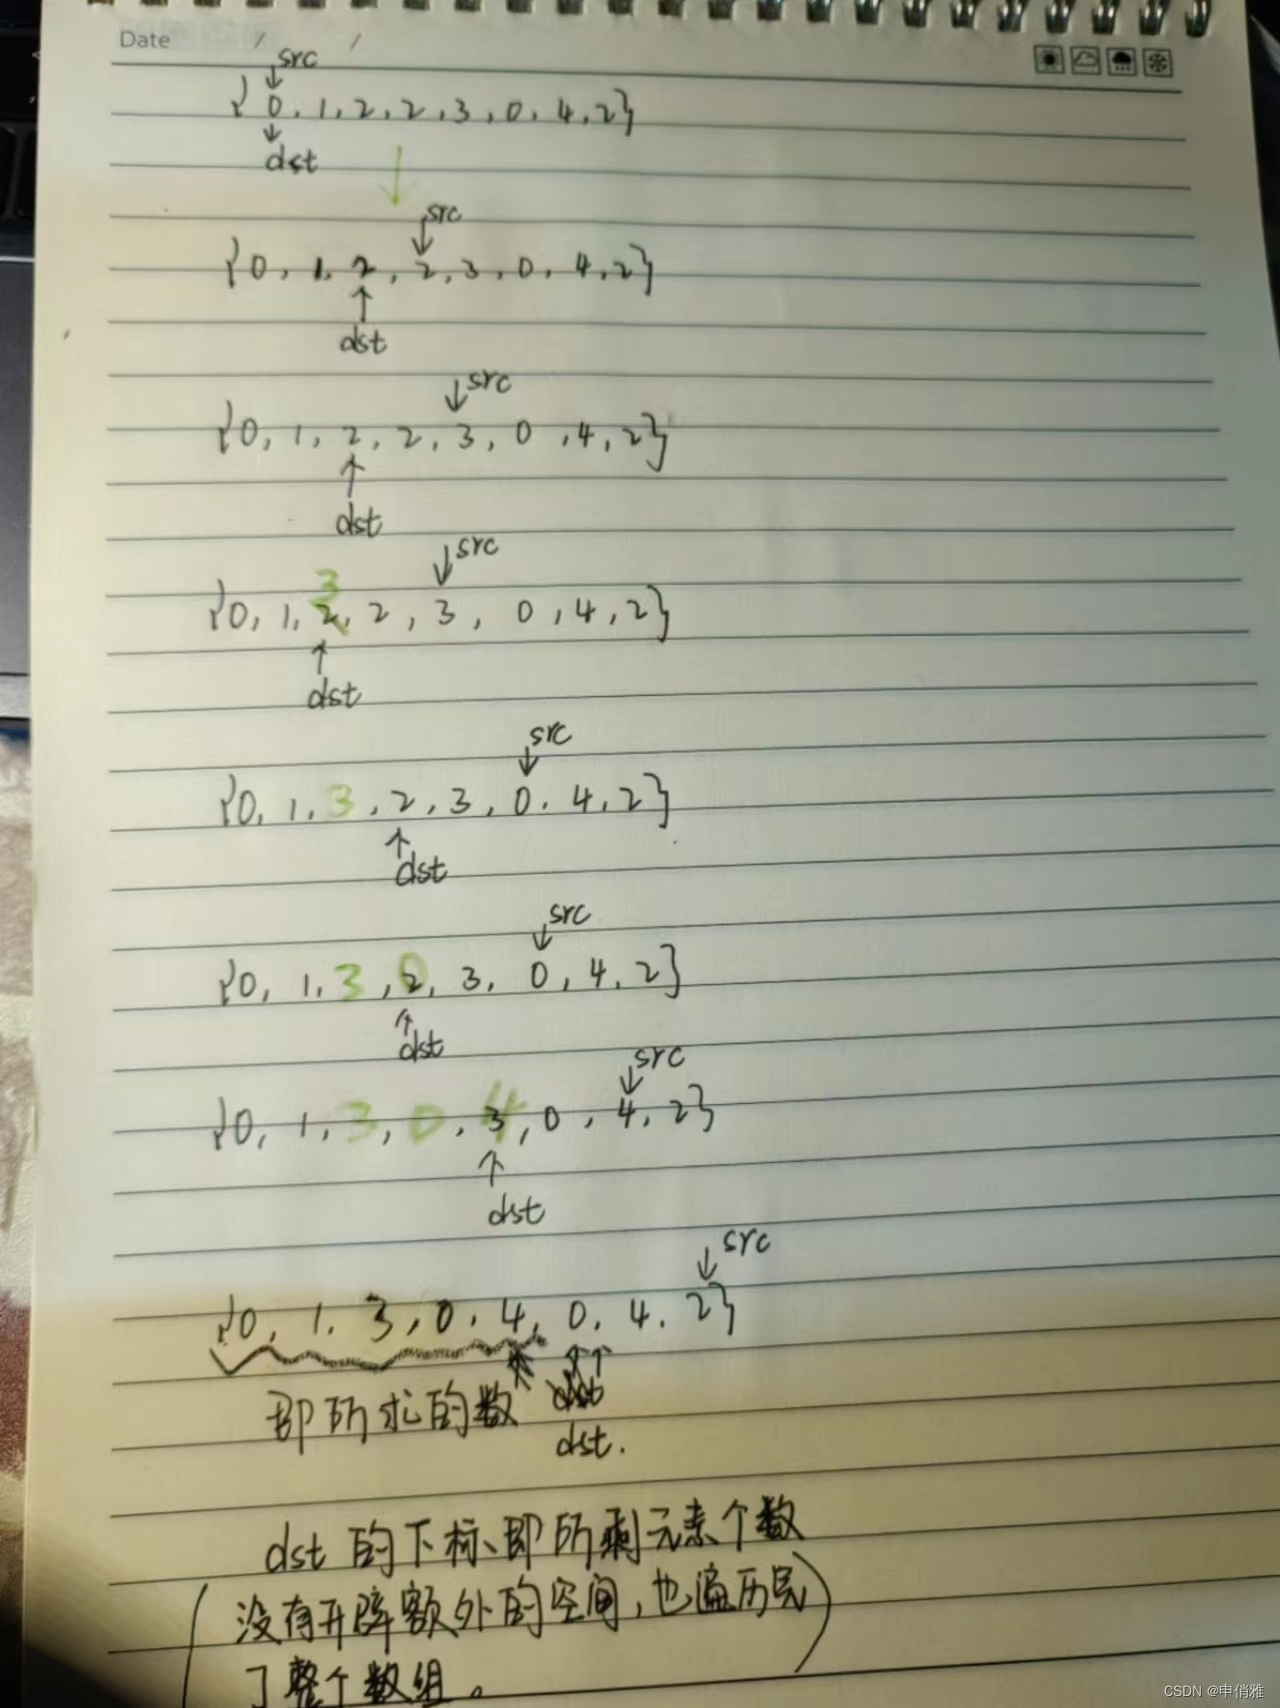 Date / /
src
{0,1,2,2,3,0,4,2}
dst
src
{0,1,2,2,3,0,4,2}
dst
src
{0,1,2,2,3,0,4,2}
dst
src
3
{0,1,2,2,3,0,4,2}
dst
src
{0,1,3,2,3,0,4,2}
dst
src
0
{0,1,3,2,3,0,4,2}
dst
src
4
{0,1,3,0,3,0,4,2}
dst
src
{0,1,3,0,4,0,4,2}
即所求的数
dst.
dst的下标、即所剩元素个数
(没有开辟额外的空间,也遍历完)
了整个数组。
CSDN @申俏雅